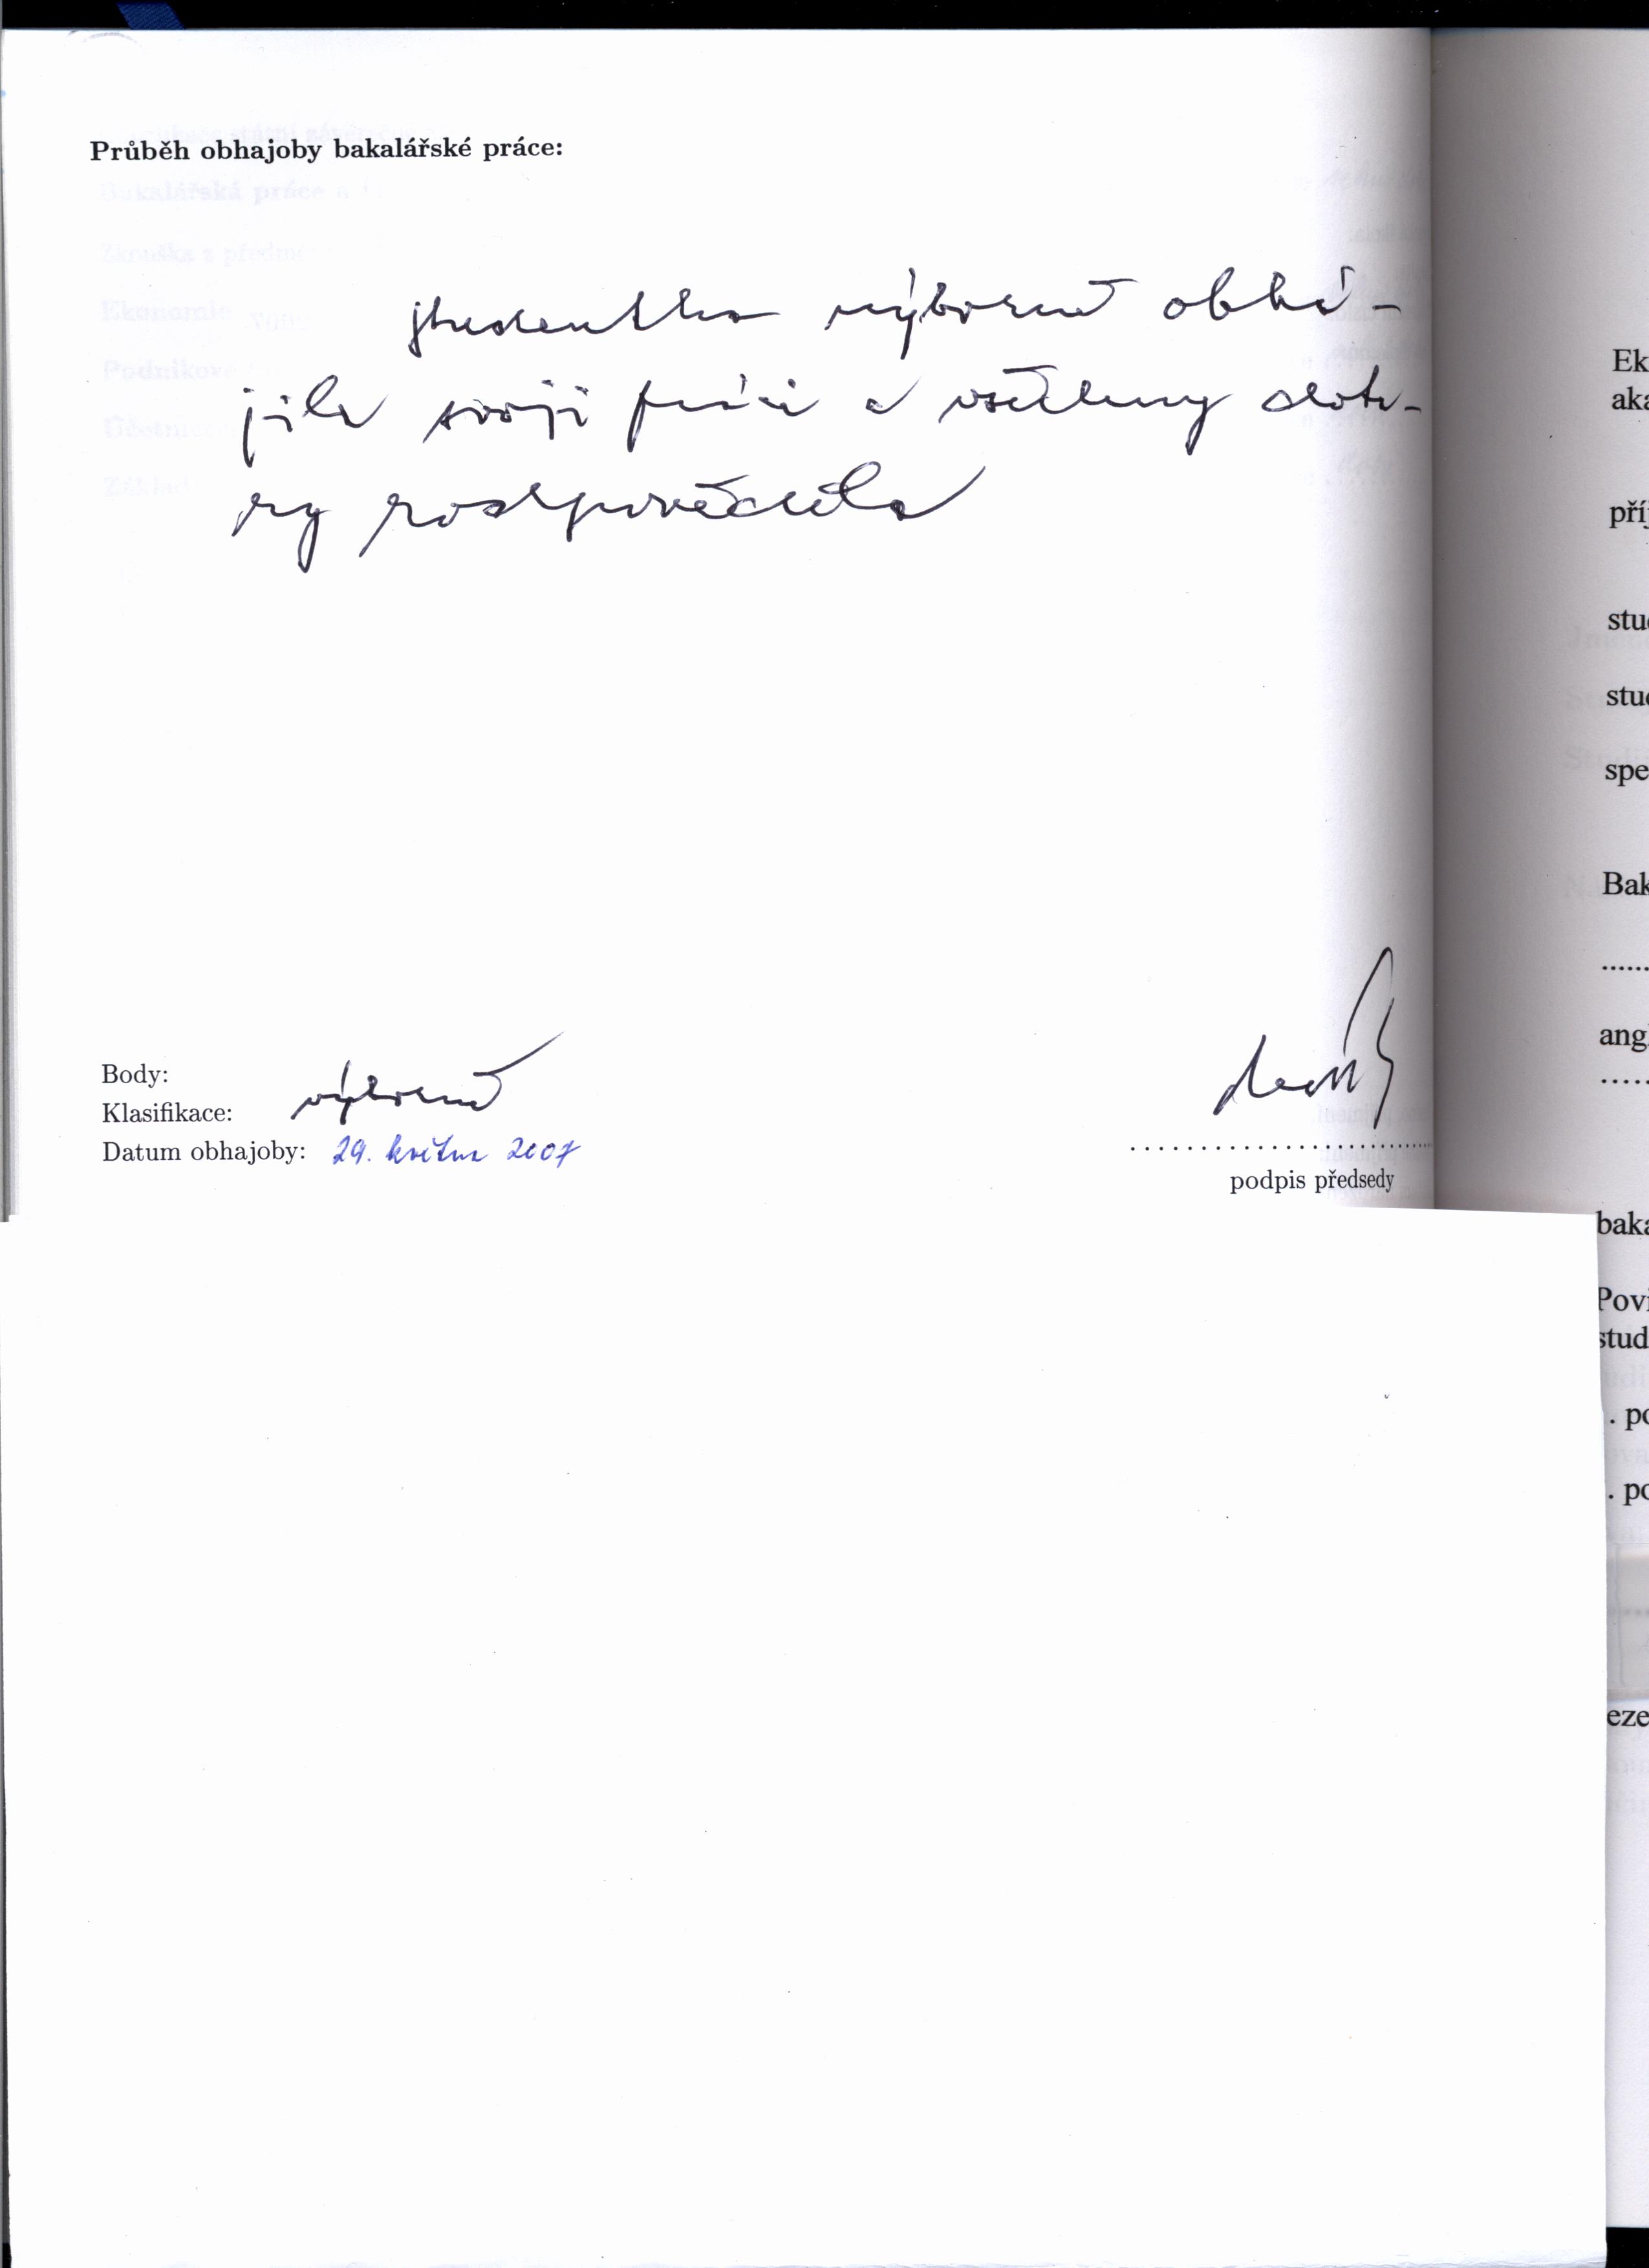 Průběh obhajoby bakalářské práce:
studentka výborně obhá-
jila svoji práci a všechny dota-
zy zodpověděla
Body:
Klasifikace: výborně
Datum obhajoby: 29. května 2007
podpis předsedy
Ek
aka
příj
stud
stud
spe
Bak
angl
baka
Povi
stud
. po
. po
eze